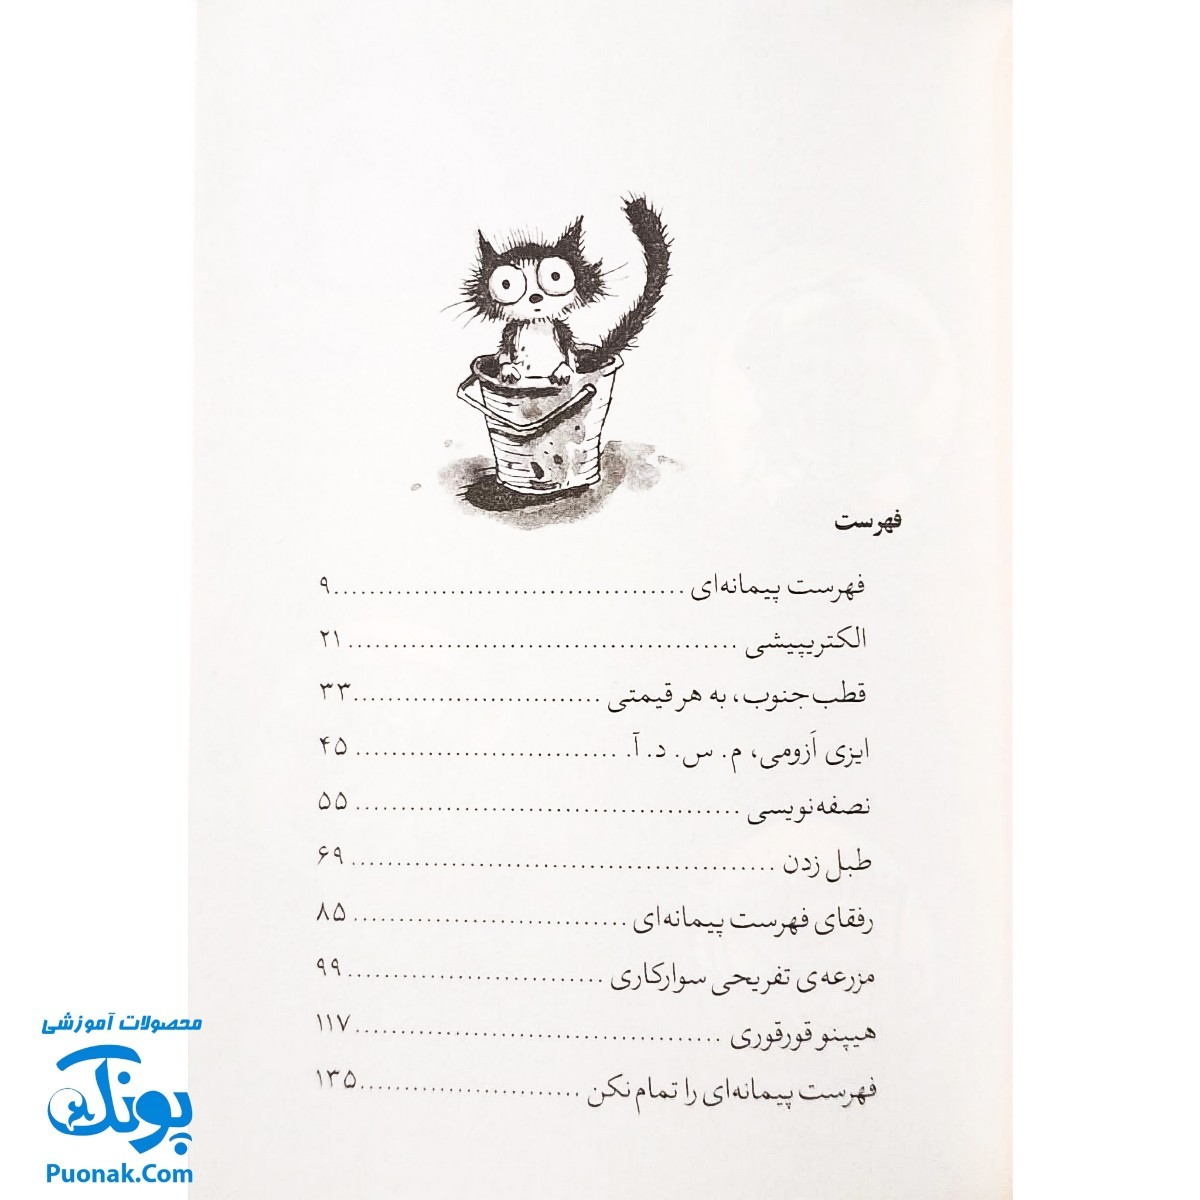 فهرست
فهرست پیمانه‌ای ۹
الکتریپیشی ۲۱
قطب جنوب، به هر قیمتی ۳۳
ایزی اَزومی، م. س. د. آ. ۴۵
نصفه‌نویسی ۵۵
طبل زدن ۶۹
رفقای فهرست پیمانه‌ای ۸۵
مزرعه‌ی تفریحی سوارکاری ۹۹
هیپنو قورقوری ۱۱۷
فهرست پیمانه‌ای را تمام نکن ۱۳۵
محصولات آموزشی
پونک
Puonak.Com